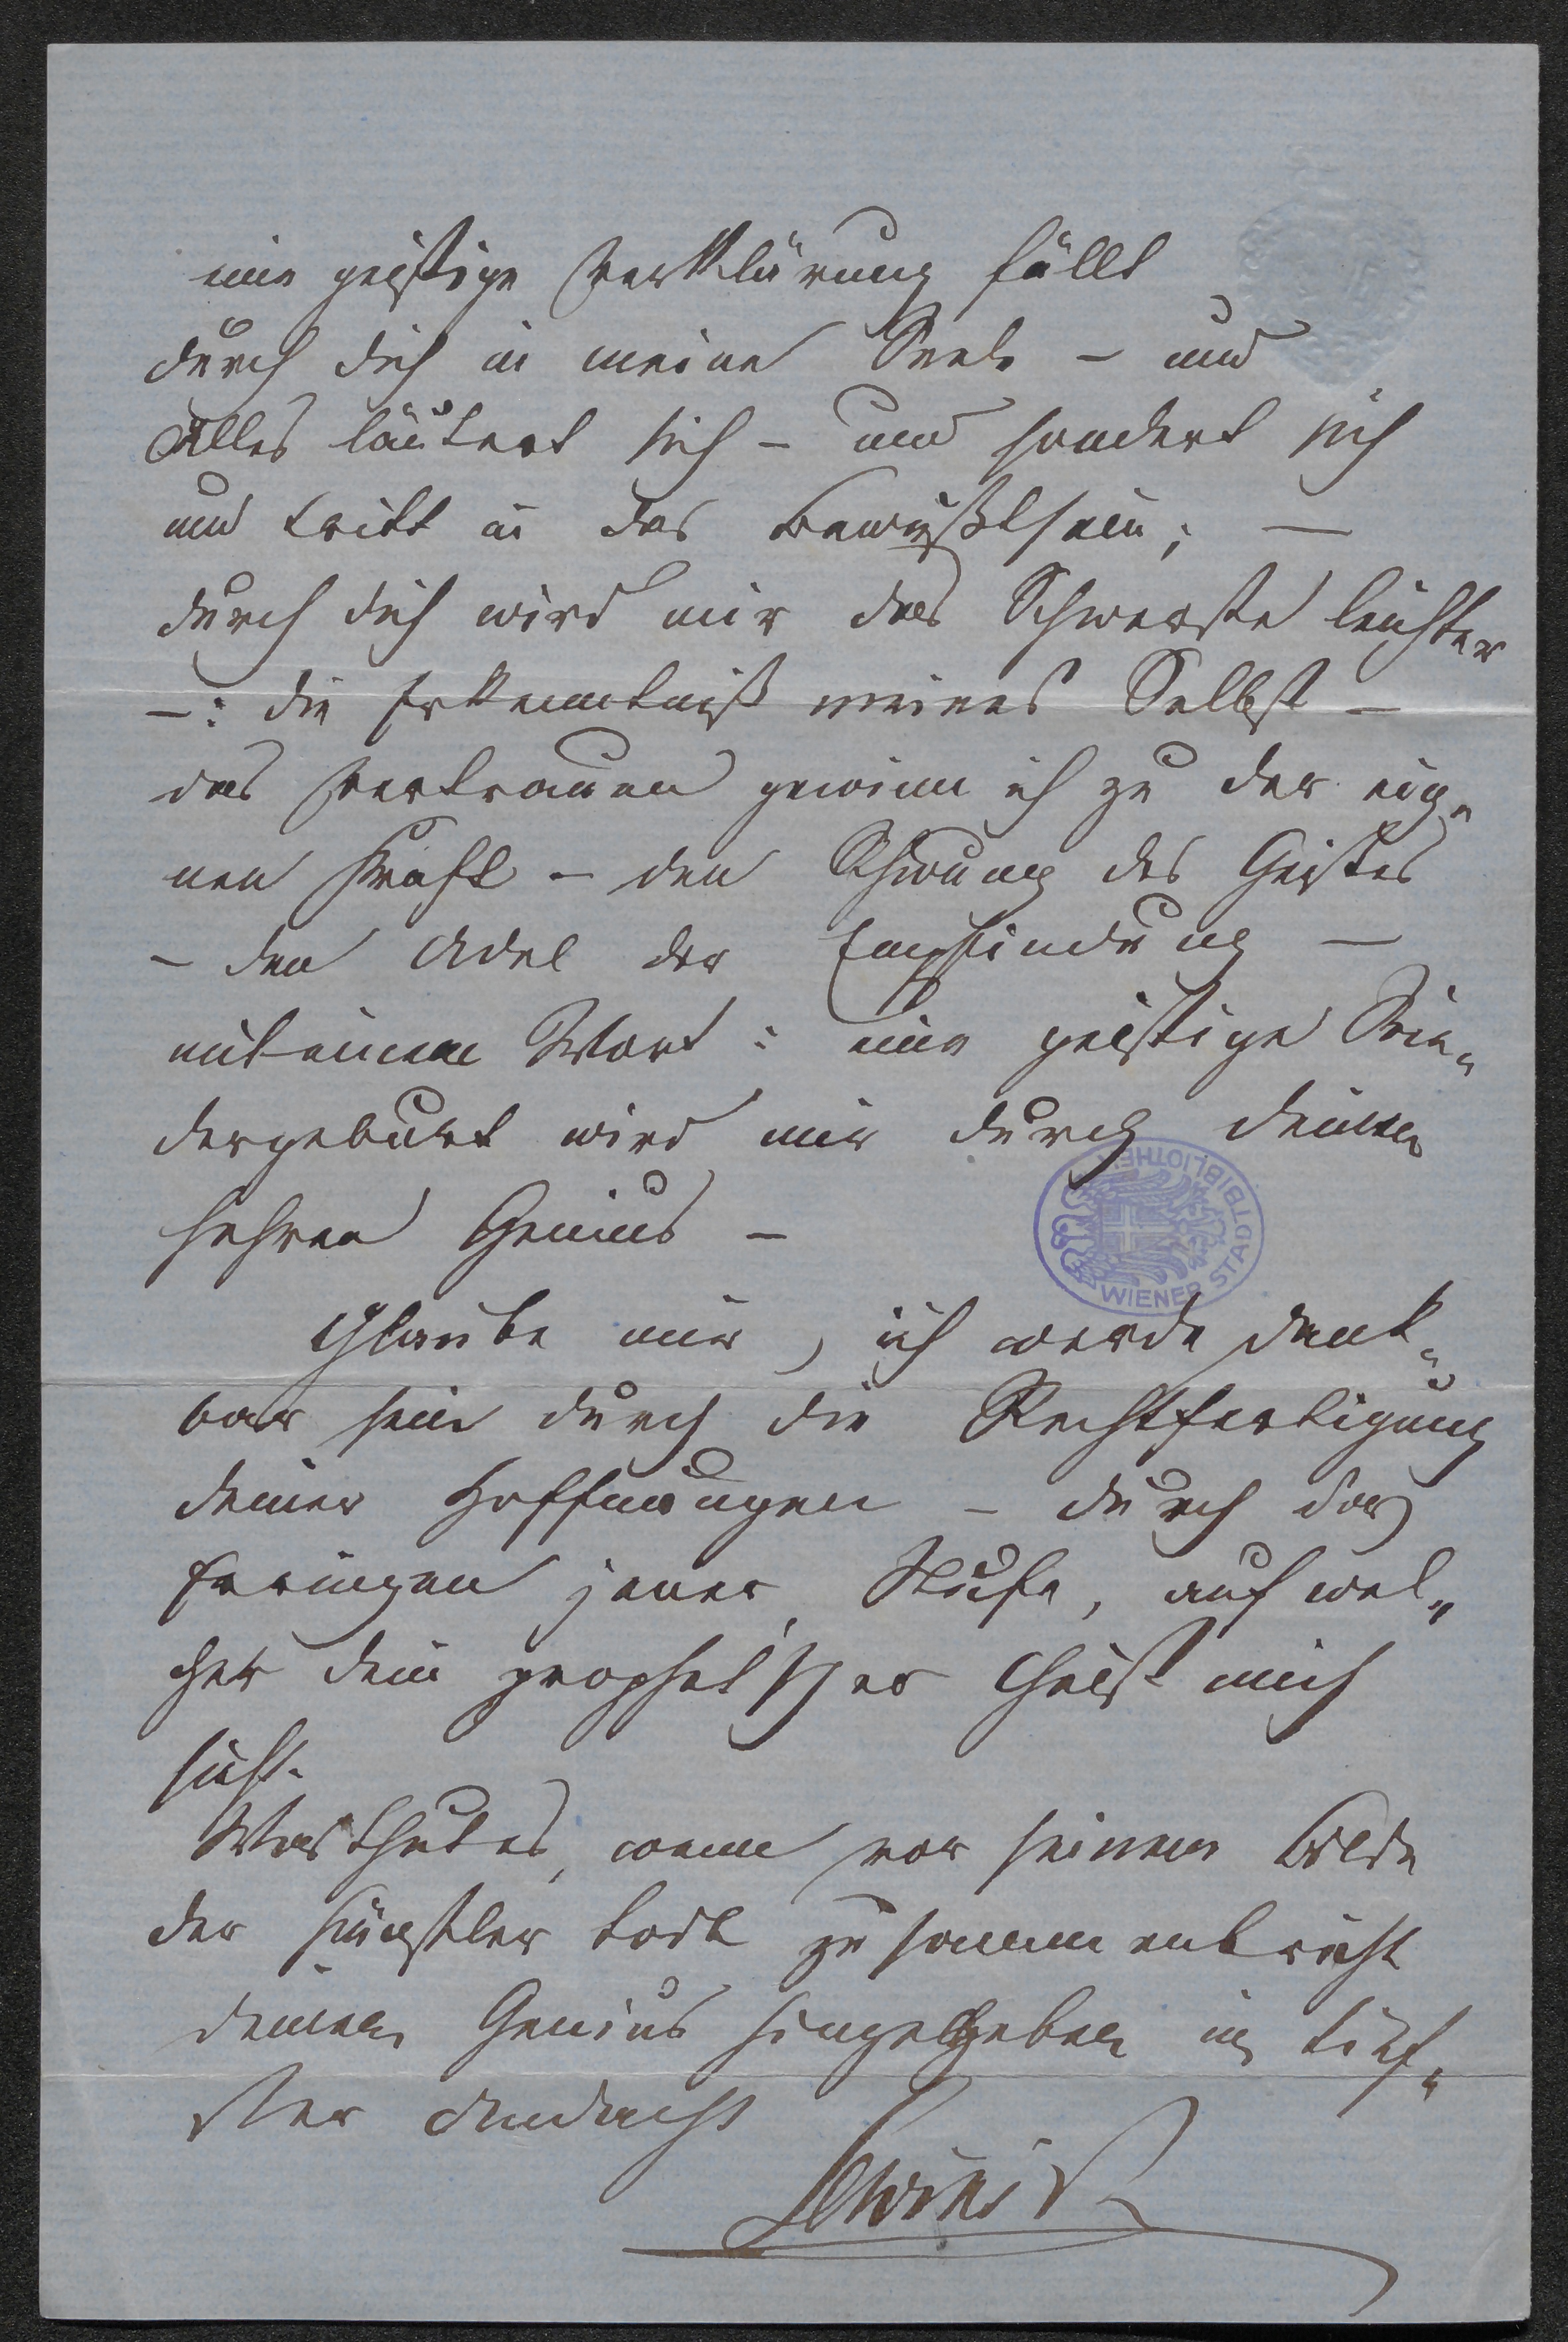 eine geistige Verklärung fällt
durch dich in meine Seele – und
Alles läutert sich – und sondert sich
und tritt in das Bewußtsein; –
durch dich wird mir das Schwerste leichter
–: die Erkenntniß meines Selbst –
das Vertrauen gewinn ich zu der eig„
nen Kraft – den Schwung des Geistes
– den Adel der Empfindung –
mit einem Wort: eine geistige Wie„
dergeburt wird mir durch deinen
hehren Genius –
WIENER STADTBIBLIOTHEK
Glaube mir, ich werde dank„
bar sein durch die Rechtfertigung
deiner Hoffnungen – durch das
Erringen jener Stufe, auf wel„
cher dein prophet'scher Geist mich
sieht.
Was thut es, wenn vor seinem Bilde
der Künstler todt zusammenbricht
deinem Genius hingegeben in tief„
ster Andacht